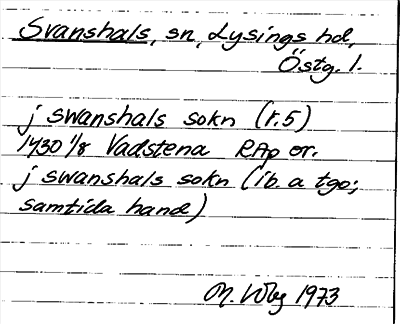 Svanshals, sn, Lysings hd,
Östg. l.
j swanshals sokn (r.5)
1430 1/8 Vadstena RAp or.
j swanshals sokn (ib. a tgo;
samtida hand)
M. 1973